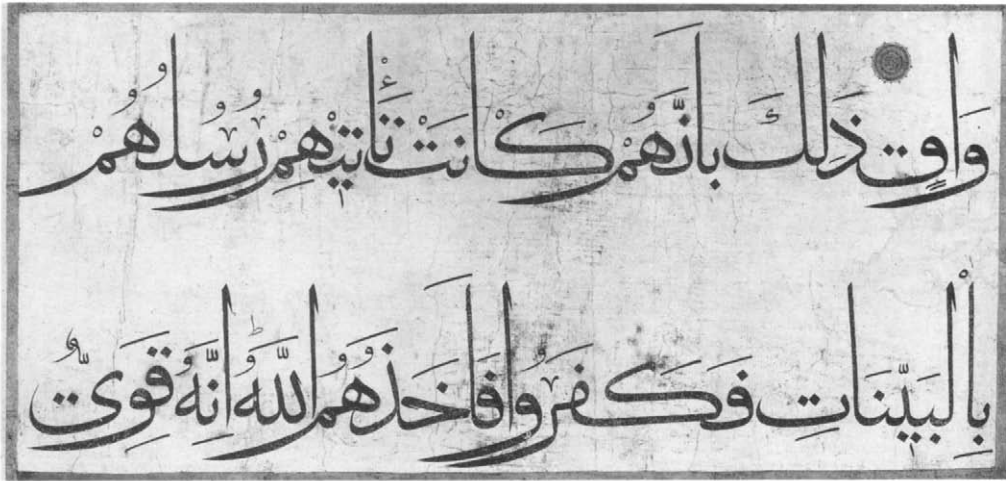 وَاقٍ ذَلِكَ بِاَنَّهُمْ كَانَتْ تَأْتِيْهِمْ رُسُلُهُمْ
بِالْبَيِّنَاتِ فَكَفَرُوا فَاَخَذَهُمُ اللَّهُ اِنَّهُ قَوِيٌّ